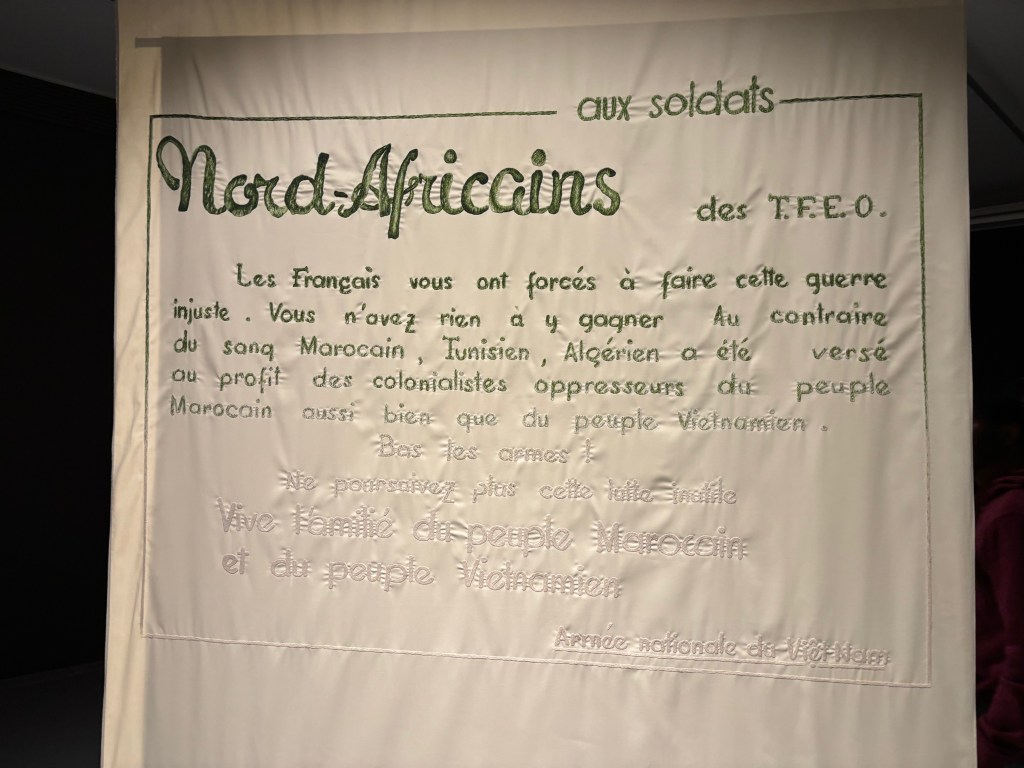 aux soldats
Nord-Africains
des T.F.E.O.
Les Français vous ont forcés à faire cette guerre
injuste. Vous n'avez rien à y gagner Au contraire
du sang Marocain, Tunisien, Algérien a été versé
au profit des colonialistes oppresseurs du peuple
Marocain aussi bien que du peuple Vietnamien.
Bas les armes !
Ne poursuivez plus cette lutte inutile
Vive l'amitié du peuple Marocain
et du peuple Vietnamien
Armée nationale du Việt-Nam